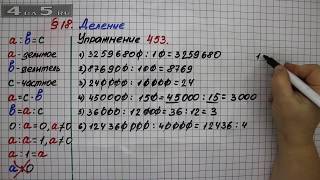 §18. Деление
Упражнение 453.
a:b=c
a-делимое
b-делитель
c-частное
a=c·b
b=a:c
0:a=0, a≠0
a:a=1, a≠0
a:1=a
a:0
1) 32596800:10=3259680
2) 87690:10=8769
3) 240000:10000=24
4) 45000:150=45000:15=3000
5) 36000:12000=36:12=3
6) 124360000:40000=12436:4